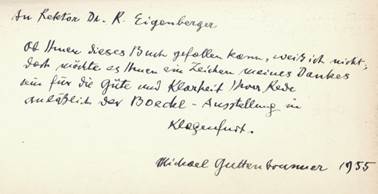 An Rektor Dr. R. Eigenberger
Ob Ihnen dieses Buch gefallen kann, weiß ich nicht,
doch möchte es Ihnen ein Zeichen meines Dankes
sein für die Güte und Klarheit Ihrer Rede
anläßlich der Boeckl-Ausstellung in
Klagenfurt.
Michael Guttenbrunner 1955